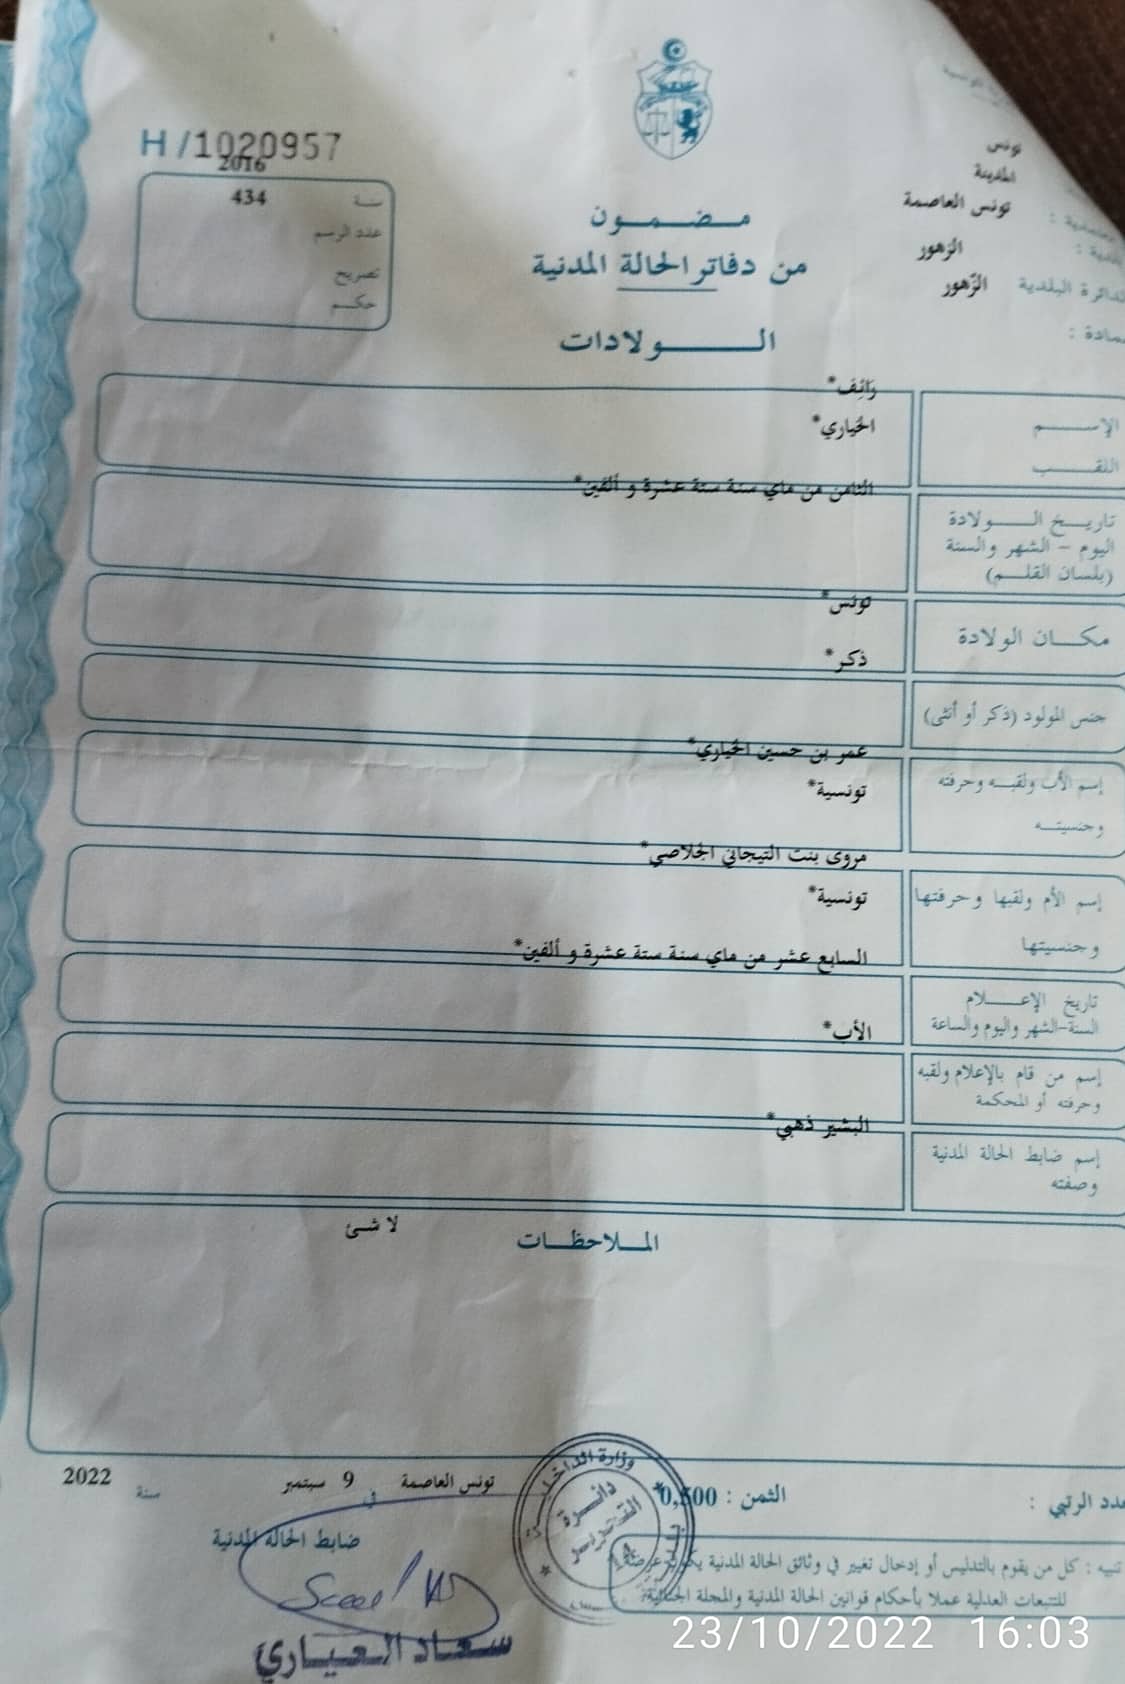 H/1020957
2016
سنة
434
عدد الرسم
تصريح
حكم
تونس
المدينة
تونس العاصمة
الزهور
الدائرة البلدية
الزّهور
مضمون
من دفاتر الحالة المدنية
الولادات
الإسم
رَائِف*
اللقب
الخياري*
تاريخ الولادة
اليوم - الشهر والسنة
(بلسان القلم)
الثامن من ماي سنة ستة عشرة و ألفين*
مكان الولادة
تونس*
جنس المولود (ذكر أو أنثى)
ذكر*
إسم الأب ولقبه وحرفته
وجنسيته
عمر بن حسين الخياري*
تونسية*
إسم الأم ولقبها وحرفتها
وجنسيتها
مروى بنت التيجاني الجلاصي*
تونسية*
تاريخ الإعلام
السنة-الشهر واليوم والساعة
السابع عشر من ماي سنة ستة عشرة و ألفين*
إسم من قام بالإعلام ولقبه
وحرفته أو المحكمة
الأب*
إسم ضابط الحالة المدنية
وصفته
البشير ذهبي*
الملاحظات
لا شئ
عدد الرتبي :
الثمن : 0,500
تونس العاصمة في 9 سبتمبر سنة 2022
ضابط الحالة المدنية
وزارة الداخلية
دائرة
سعاد العياري
تنبيه : كل من يقوم بالتدليس أو إدخال تغيير في وثائق الحالة المدنية يكون عرضة
للتتبعات العدلية عملا بأحكام قوانين الحالة المدنية والمجلة الجنائية
23/10/2022 16:03